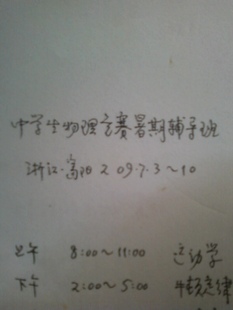 中学生物理竞赛暑期辅导班
浙江·富阳 2009.7.3～10
上午 8:00～11:00 运动学
下午 2:00～5:00 牛顿定律